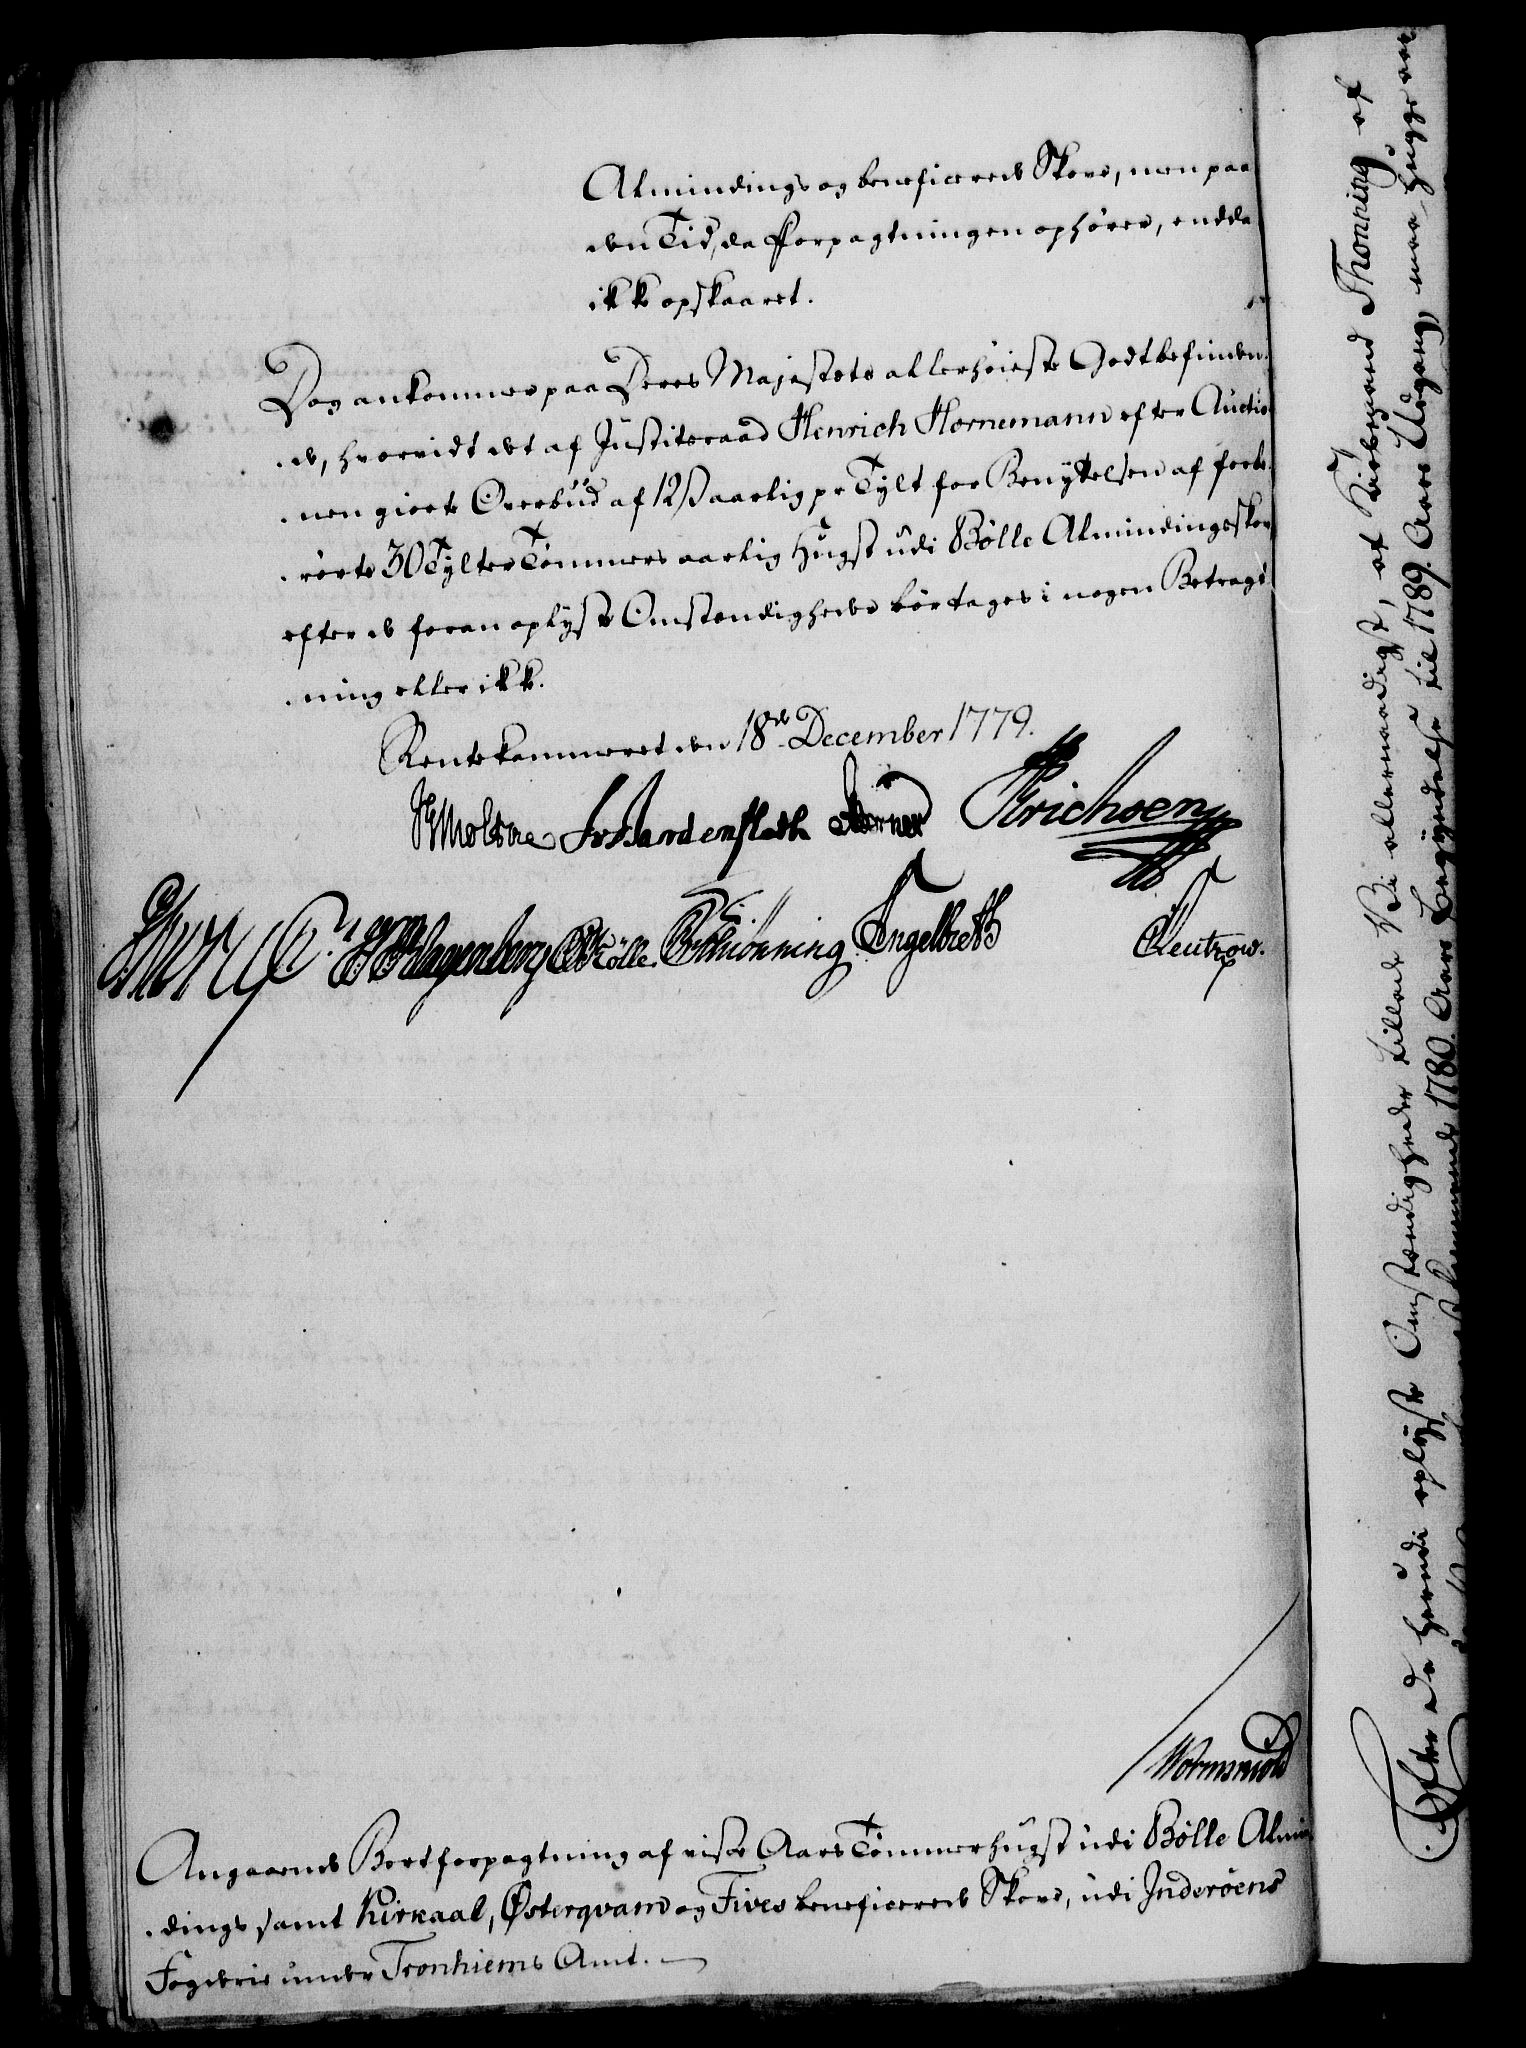 Almindings og beneficerede Skove, men paa
den Tid, da Forpagtningen ophører, endda
ikke opskaaret.
Dog ankommer paa Deres Majestets allerhøieste Godtbefinden-
-de, hvorvidt det af Justitsraad Henrich Hornemann efter Auctio-
-nen giorte Overbud af 12 ß aarlig pr Tylt for Benyttelsen af forbe-
-rørte 30 Tylter Tømmers aarlig Hugst udi Bølle Almindingsskov
efter de foran oplyste Omstændigheder bør tages i nogen Betragt-
-ning eller ikke.
Rentekammeret den 18de December 1779.
Moltke Fr Bardenfleth Erichsen
Klagenberg Schiönning Engelbreth Leutzow.
Wormskiold
Angaaende Bortforpagtning af visse Aars Tømmerhugst udi Bølle Almin-
-dings samt Kirkaal, Østerqvam og Fives beneficerede Skove, udi Inderøens
Fogderie under Tronhiems Amt.
Efter de herudi oplyste Omstændigheder tillade Vi allernaadigst, at Kiøbmand Thonning af
kommende 1780. Aars Begyndelse til 1789. Aars Udgang, maa hugge aar